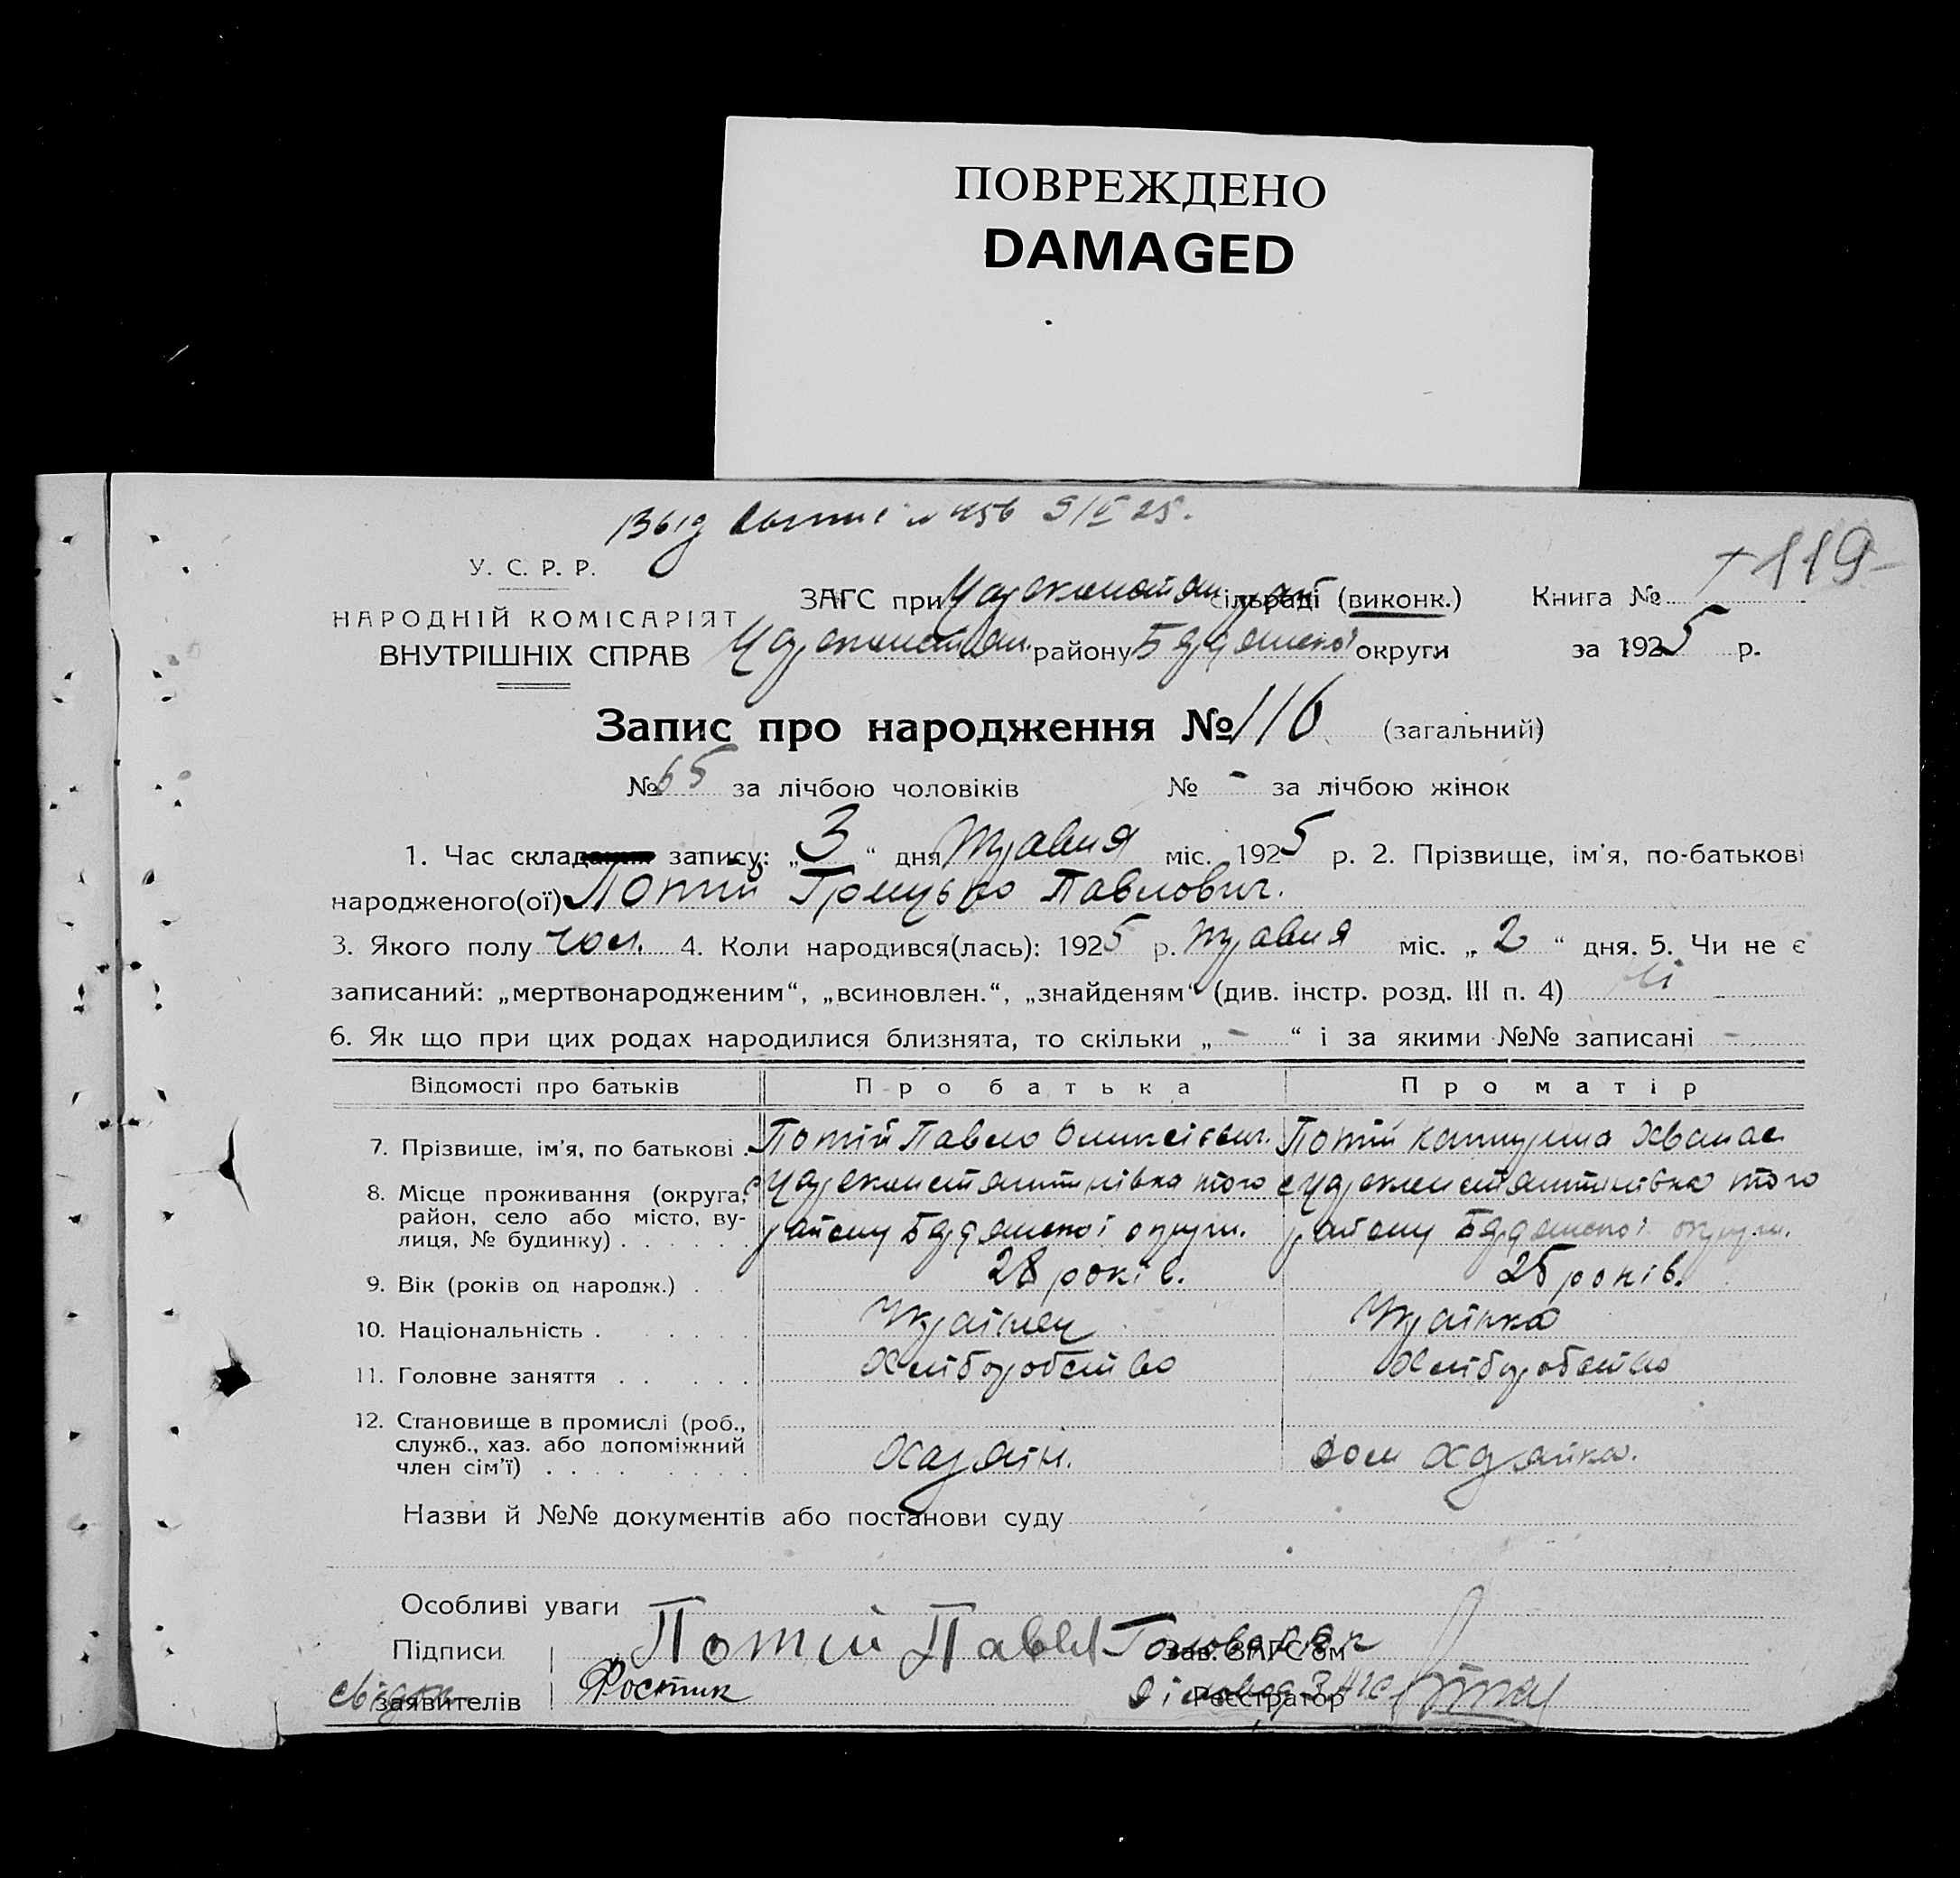 ПОВРЕЖДЕНО
DAMAGED
9/V 25.
119
У. С. Р. Р.
НАРОДНІЙ КОМІСАРІЯТ
ВНУТРІШНІХ СПРАВ
ЗАГС при Царeконстян сільраді (виконк.) Книга №
Царeконстян. району Бердянської округи за 1925 р.
Запис про народження № 116 (загальний)
№ 65 за лічбою чоловіків № - за лічбою жінок
1. Час склад запису: „3“ дня травня міс. 1925 р. 2. Прізвище, ім'я, по-батькові
народженого(ої) Потій Грицько Павлович.
3. Якого полу чол. 4. Коли народився(лась): 1925 р. травня міс. „2“ дня. 5. Чи не є
записаний: „мертвонародженим“, „всиновлен.“, „знайденям“ (див. інстр. розд. III п. 4) ні -
6. Як що при цих родах народилися близнята, то скільки „-“ і за якими №№ записані -
Відомості про батьків Про батька Про матір
7. Прізвище, ім'я, по батькові . Потій Павло Олексієвич. Потій Катерина Хванас
8. Місце проживання (округа, район, село або місто, вулиця, № будинку) с Цареконстянтинівка того с Цареконстянтинівка того
району Бердянської округи. району Бердянської округи.
9. Вік (років од народж.) . 28 років. 25 років.
10. Національність . Українец Українка
11. Головне заняття . . Хліборобство Хліборобство
12. Становище в промислі (роб.,
служб., хаз. або допоміжний
член сім'ї) . . . . Хазяїн. дом хазяйка.
Назви й №№ документів або постанови суду
Особливі уваги
Підписи Потій Павел Голова Зав. ЗАГС'ом
свідок заявителів Ростик діловод ЗАГС Реєстратор